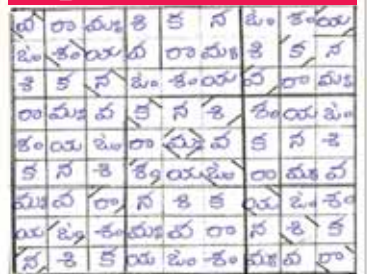 వ రా మః శి క న ఓం శం య
ఓం శం య వ రా మః శి క న
శి క న ఓం శం య వ రా మః
రా మః వ క న శి శం య ఓం
శం య ఓం రా మః వ క న శి
క న శి శం య ఓం రా మః వ
మః వ రా న శి క య ఓం శం
య ఓం శం మః వ రా న శి క
న శి క య ఓం శం మః వ రా